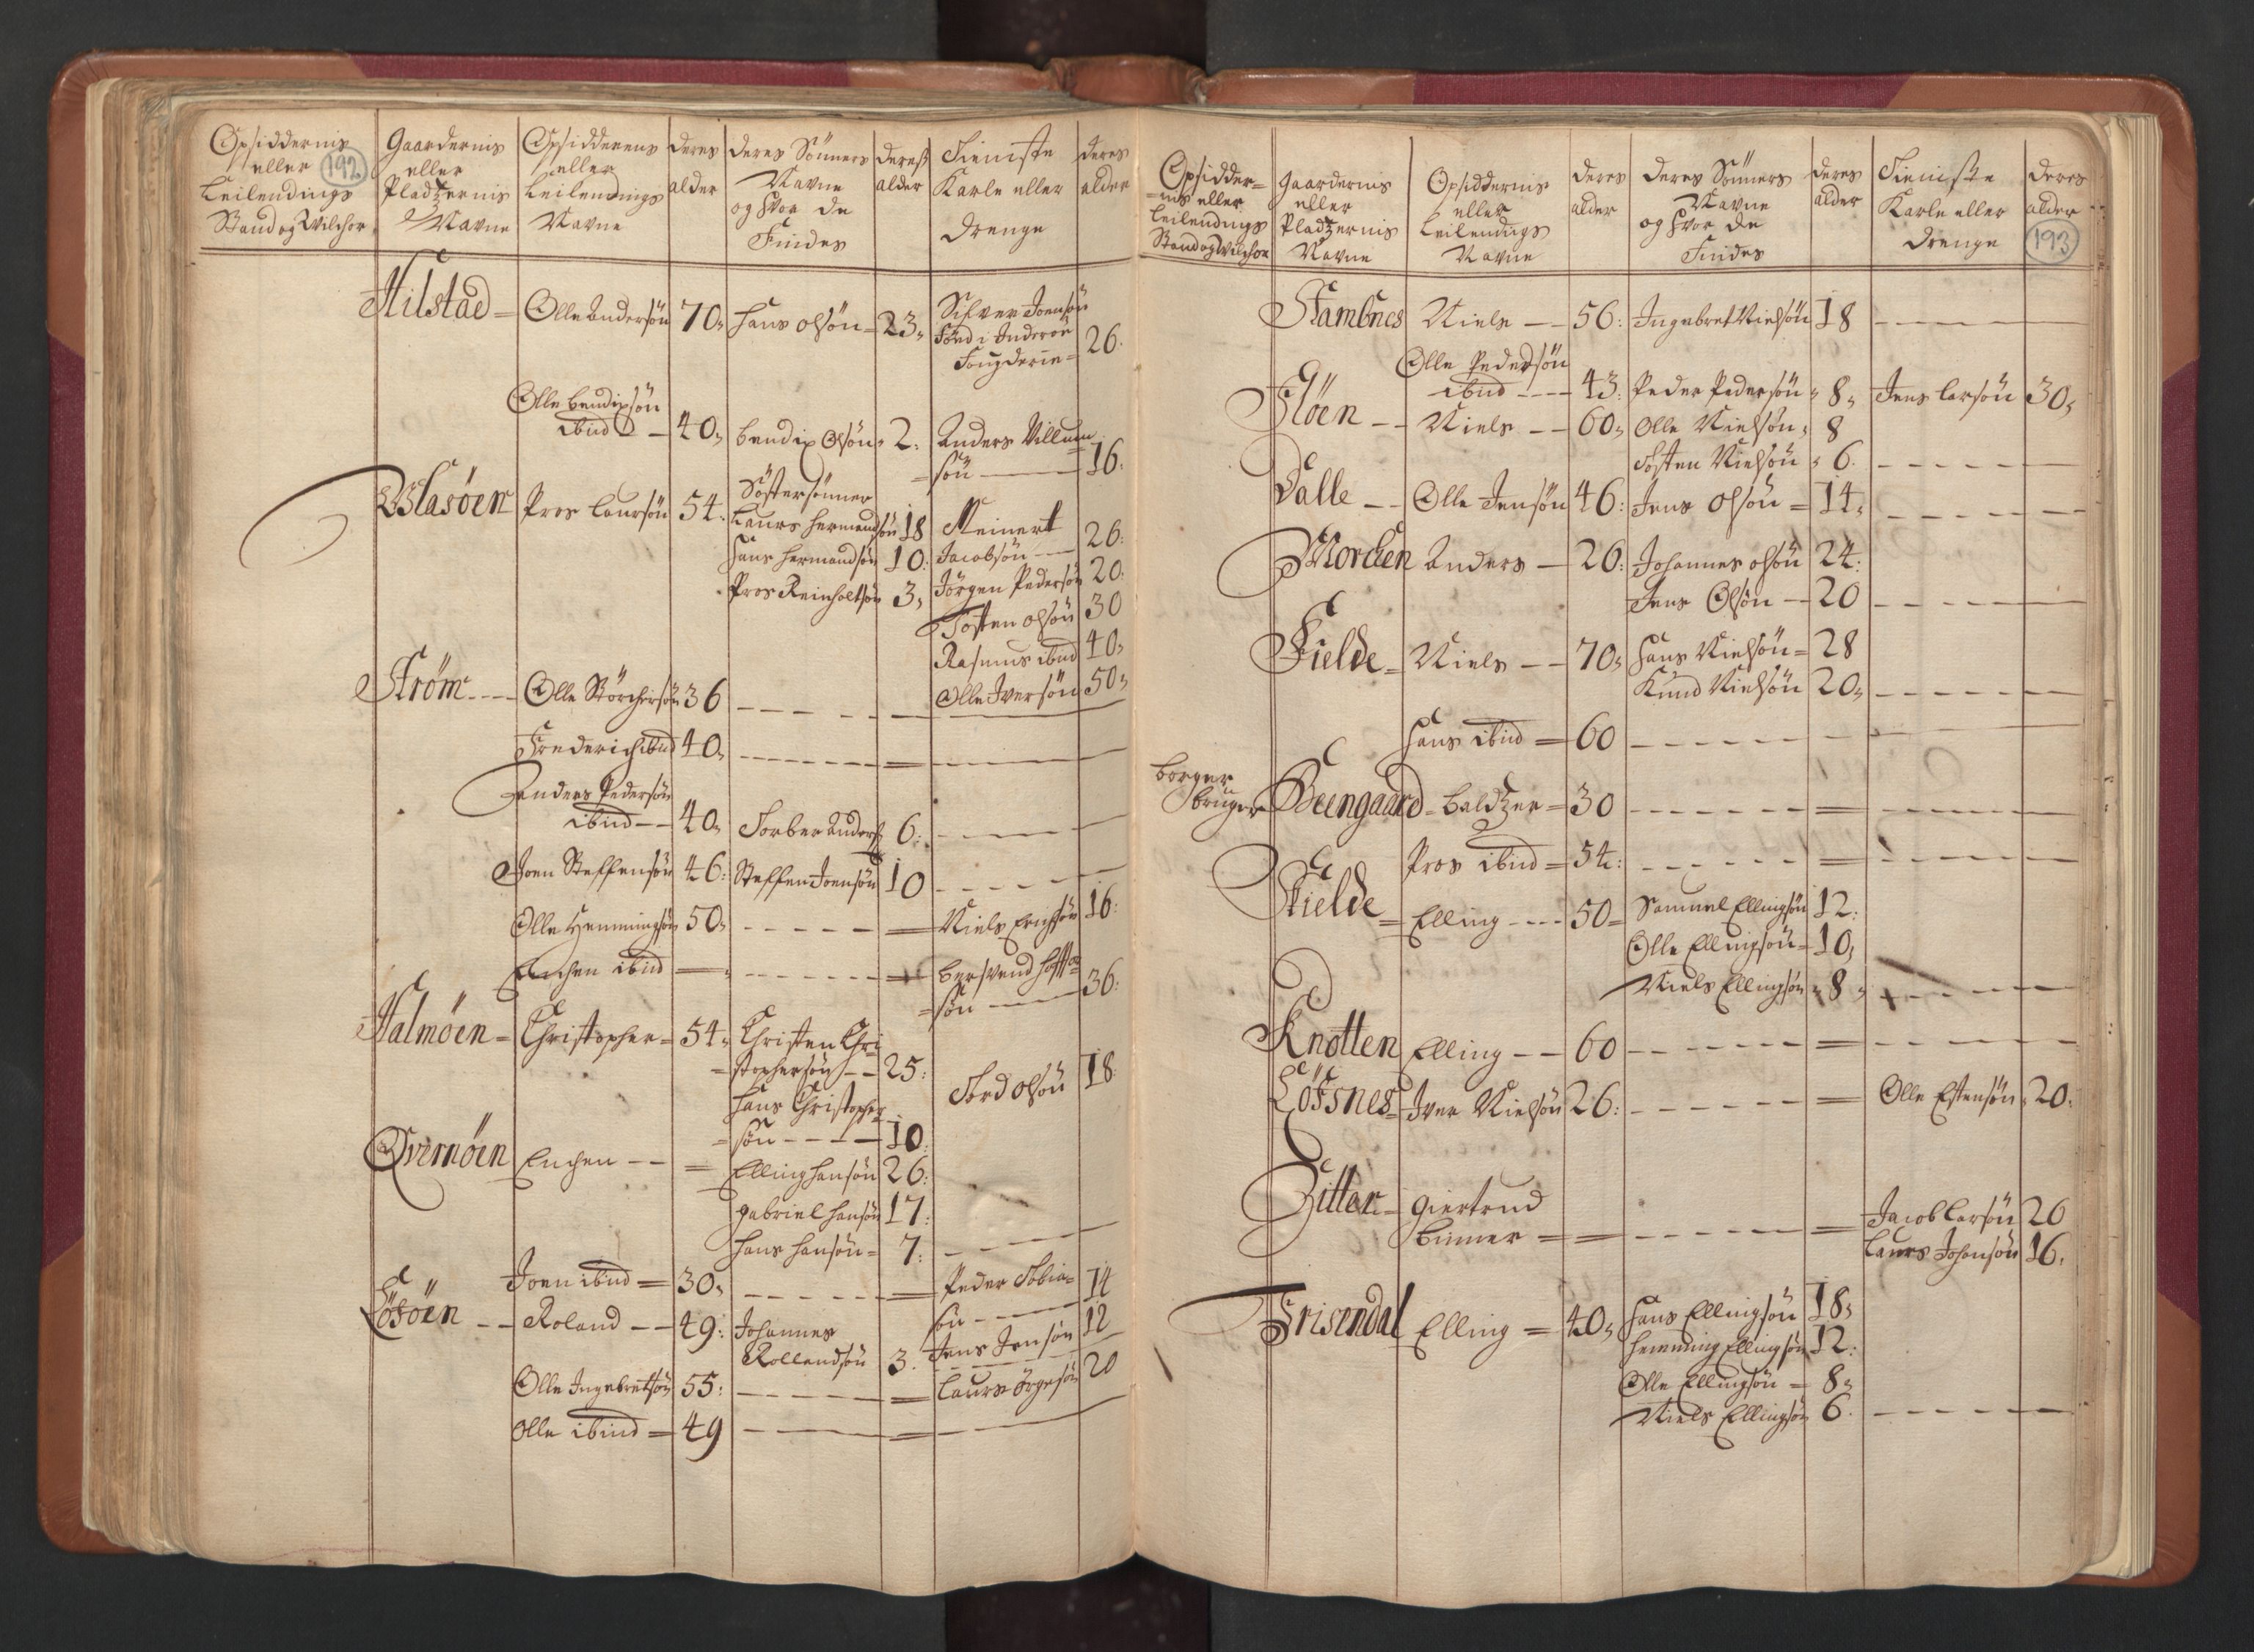 192
Opsiddernis eller Leilendings Stand og Vilchor
Gaardernis eller Pladzernis Navne
Opsidderens eller Leilendings Navne
deres alder
deres Sönners Navne og hvor de Findes
deres alder
Tieniste Karle eller drenge
deres alder
Hilstad = Olle Andersön 70, hans olsön = 23, Sifver Joensön
Föed i Inderöe
Fougderie = 26.
Olle bendixsön
ibid – 40, bendix Olsön, 2. Anders Villum
= sön — 16.
Wlasöen Pros laursön 54. Söstersönner
Laurs hermandsön 18 Meinert
hans hermandsön 10. Jacobsön — 26.
Pros Reinholtsön 3, Jörgen Pedersön 20.
Tosten olsön 30
Rasmus ibid 40,
Ström – – – Olle Störchersön 36 – – – Olle Iversön 50,
Frederich ibid 40, – – –
Anders Pedersön
ibid – – 40, Torber Anders 6. – – –
Joen Steffensön 46. Steffen Joensön 10 – – –
Olle Hemmingsön 50, – – – Niels Erichsön 16.
Enchen ibid – – – bersvend hoff
= sön — 36.
Halmöen = Christopher = 54, Christen Chri
= stophersön – – 25.
Tord olsön 18.
hans Christopher
= sön – – – 10.
Qvernöen Enchen – – = Elling hansön 26.
gabriel hansön 17.
hans hansön = 7. – – –
Joen ibid = 30, – – – Peder Tobia=
sön – – – 14
Lösöen – – Roland – – 49. Johannes
Rollandsön 3. Jens Jensön 12
Olle Ingebretsön 55. – – – laurs örgesön 20
Olle ibid = 49 – – –
193
Opsidder=
=nis eller Leilendings Stand og Vilchor
Gaardernis eller Pladzernis Navne
Opsiddernis eller Leilendings Navne
deres alder
deres Sönners Navne og hvor de Findes
deres alder
Tieniste Karle eller drenge
deres alder
Stambnes Niels – – 56. Ingebret Nielsön 18 – – –
Olle Pedersön
ibid – – – 43. Peder Pedersön, 8, Jens larsön 30,
Flöen – – Niels – – 60, Olle Nielsön, 8
Tosten Nielsön, 6. – – –
Dalle – – Olle Jensön 46. Jens olsön = 14, – – –
Morchen Anders – 26. Johannes olsön 24.
Jens Olsön – 20 – – –
Fielde = Niels – – 70, hans Nielsön = 28
Knud Nielsön 20, – – –
hans ibid = 60 – – –
borger
bruger Beengaard = baldzer = 30 – – –
Pros ibid = 54. – – –
Skielde = Elling – – – 50 = Samuel Ellingsön 12.
Olle Ellingsön = 10,
Niels Ellingsön, 8, – – –
Knotten Elling – – 60 – – –
Löfsnes = Iver Nielsön 26. – – – Olle Estensön, 20.
Zitter = giertrud
binner = = – – – = Jacob larsön 26
laurs Johansön 16,
Frisendal Elling = 40, hans Ellingsön 18,
hemming Ellingsön 12.
Olle Ellingsön = 8,
Niels Ellingsön 6. – – –